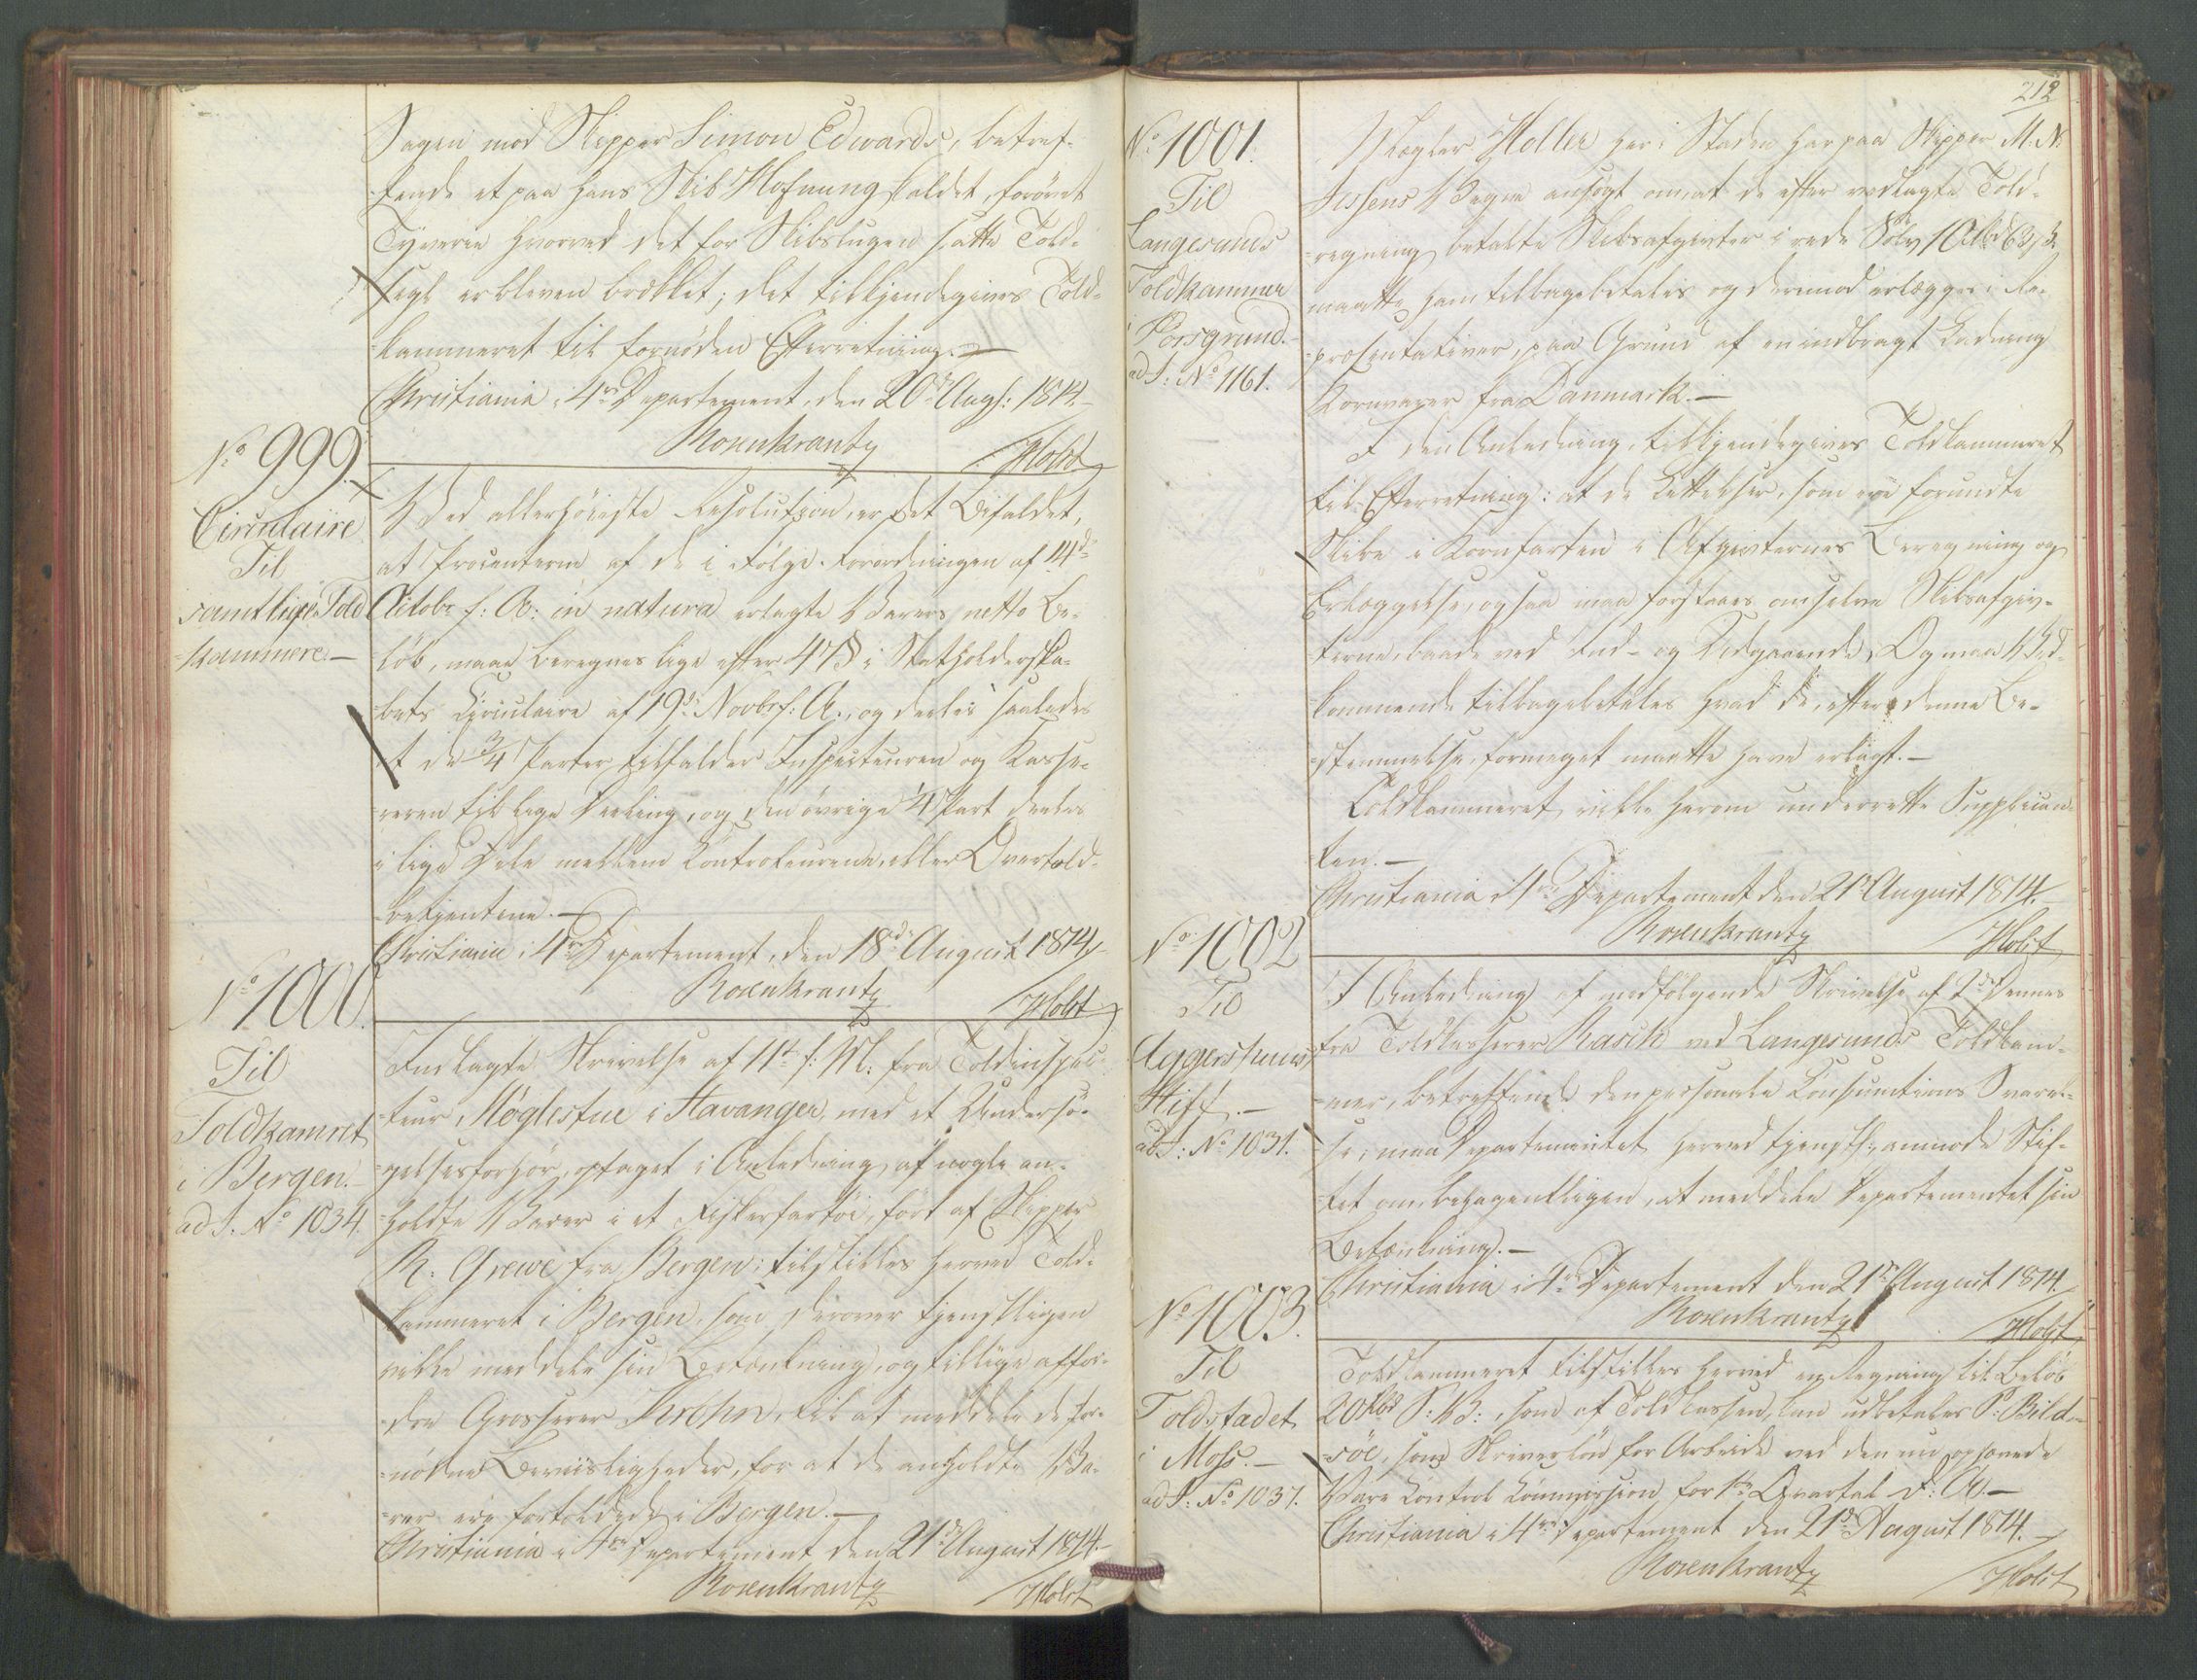 Sagen mod Skipper Simon Edwards, betref-
fende et paa hans Skib Hofnung kaldet, forøvet
Tyverie hvorved det for Skibslugen satte Told-
segl er bleven brækket; det tilkjendegives Told-
kammeret til fornøden Efterretning.—
Christiania i 4de Departement, den 20de Augs: 1814.—
Rosenkrantz
/Holst
No 999.
Circulaire
Til
samtlige Told
kammere.—
Ved allerhöieste Resolution, er det bifaldet,
at Procenterne af de i Følge Forordningen af 14d
Octobr f: A: in natura erlagte Varers netto Be-
løb, maae beregnes lige efter 47§ i Statholderska-
bets Circulaire af 19de Novbr f: A., og deeles saaledes
at de 3/4 Parter tilfalder Inspecteuren og Kasse-
reren til lige Deeling, og den øvrige 1/4 Part deeles
i lige Dele mellem Controleurene, eller Overtold-
betjentene.—
Christiania i 4de Departement, den 18de August 1814.
Rosenkrantz
/Holst
No 1000.
Til
Toldkamret
i Bergen.—
ad J. No 1034.
Indlagte Skrivelse af 11te f: M. fra Toldinspec-
teur Møglestue i Stavanger, med et Undersø-
gelsesforhør, optaget i Anledning af nogle an-
holdte Varer i et Fiskerfartøi, ført af Skipper
R. Grewe fra Bergen; tilstilles herved Told-
kammeret i Bergen, som derover tjenstligen
ville meddele sin Betænkning, og tillige affor-
dre Grosserer Krohn, til at meddele de for-
nødne Beviisligheder, for at de anholdte Va-
rer ere fortoldede i Bergen.—
Christiania i 4de Departement den 21de August 1814.—
Rosenkrantz
/Holst
212
No 1001.
Til
Langesunds
Toldkammer
i Porsgrund.—
ad J: No 1161.
Mægler Møller her i Staden har paa Skipper M. N.
Jessens Vegne ansøgt om, at de efter vedlagte Told-
regning betalte Skibsafgivter i rede Sølv
maatte ham tilbagebetales og derimod erlægges i Re-
præsentativer, paa Grund af en indbragt Ladning
Kornvarer fra Danmark.—
I den Anledning, tilkjendegives Toldkammeret
til Efterretning: at de Lettelser, som ere forundte
Skibe i Kornfarten i Afgivternes Beregning og
Erlæggelse, ogsaa maa forstaaes om selve Skibsafgiv-
terne, baade ved Ind- og Udgaaende, Og maa Ved-
kommende tilbagebetales hvad de, efter denne Be-
stemmelse, formeget maatte have erlagt.—
Toldkammeret ville herom underrette Supplican-
ten.—
Christiania i 4de Departement den 21de August 1814.—
Rosenkrantz
/Holst
No 1002
Til
Aggershuus
Stift.—
ad J: No 1031.
I Anledning af medfølgende Skrivelse af 2de Dennes
fra Toldkasserer Rasch ved Langesunds Toldkam-
mer, betreffende den personele Consumtions Svarel-
se; maa Departementet herved tjenstl: anmode Stif-
tet om, behageligen, at meddele Departementet sin
Betænkning.—
Christiania i 4de Departement den 21de August 1814.
Rosenkrantz
/Holst
No 1003.
Til
Toldstadet
i Moss.—
ad J: No 1037.
Toldkammeret tilstilles herved en Regning til Beløb
20 Rbd S: V:, som af Toldkassen, kan udbetales P: Bild-
söe, som Skriverløn for Arbeide ved den nu ophævede
Vare Control Commission for 1ste Qvartal d: A.—
Christiania i 4de Departement den 21de August 1814.—
Rosenkrantz
/Holst